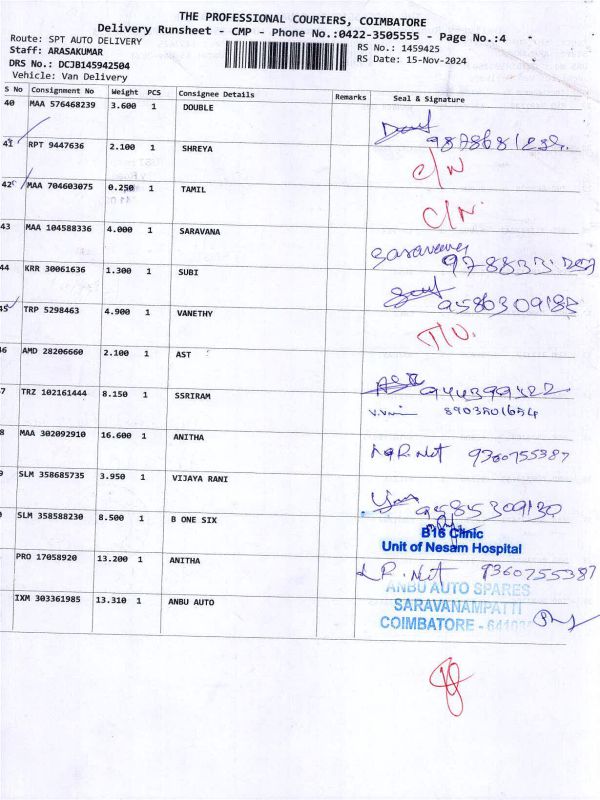 THE PROFESSIONAL COURIERS, COIMBATORE
Delivery Runsheet - CMP - Phone No.:0422-3505555 - Page No.:4
Route: SPT AUTO DELIVERY
RS No.: 1459425
Staff: ARASAKUMAR
RS Date: 15-Nov-2024
DRS No.: DCJB145942504
Vehicle: Van Delivery
S No Consignment No Weight PCS Consignee Details Remarks Seal & Signature
40 MAA 576468239 3.600 1 DOUBLE
41 RPT 9447636 2.100 1 SHREYA C/N
42 MAA 704603075 0.250 1 TAMIL C/N.
43 MAA 104588336 4.000 1 SARAVANA Saravana
44 KRR 30061636 1.300 1 SUBI
45 TRP 5298463 4.900 1 VANETHY
46 AMD 28206660 2.100 1 AST
7 TRZ 102161444 8.150 1 SSRIRAM 8903501654
8 MAA 302092910 16.600 1 ANITHA 9360755387
9 SLM 358685735 3.950 1 VIJAYA RANI 9585309130
SLM 358588230 8.500 1 B ONE SIX
B16 Clinic
Unit of Nesam Hospital
PRO 17058920 13.200 1 ANITHA 9360755387
IXM 303361985 13.310 1 ANBU AUTO
ANBU AUTO SPARES
SARAVANAMPATTI
COIMBATORE -